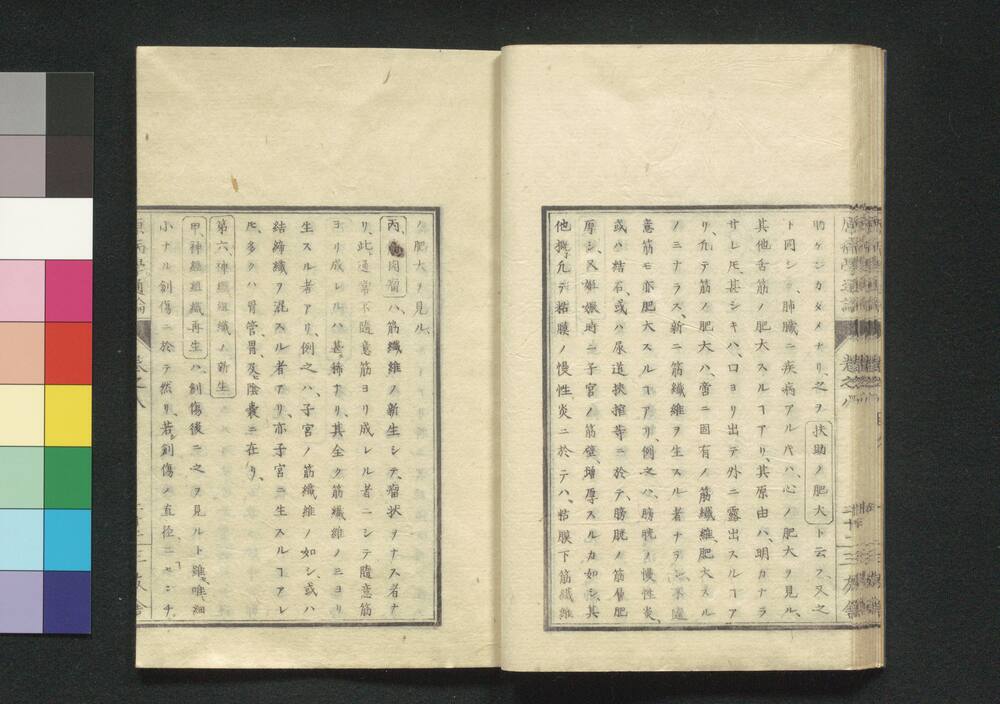 助ケンカタメナリ、之ヲ扶助ノ肥大ト云フ、又之
ト同シク、肺臓ニ疾病アル𪜈ハ、心ノ肥大ヲ見ル、
其他舌筋ノ肥大スルヿアリ、其原由ハ、明カナラ
サレ𪜈、甚シキハ、口ヨリ出テ外ニ露出スルヿア
リ、凡テ筋ノ肥大ハ、啻ニ固有ノ筋纖維、肥大スル
ノミナラス、新ニ筋纖維ヲ生スル者ナラン、不随
意筋モ亦肥大スルヿアリ、例之ハ、膀胱ノ慢性炎、
或ハ結石、或ハ尿道狹窄等ニ於テ、膀胱ノ筋層肥
厚シ、又妊娠時ニ子宮ノ筋壁、増厚スルカ如シ、其
他凡テ粘膜ノ慢性炎ニ於テハ、粘膜下筋纖維
ノ肥大ヲ見ル、
丙、筋肉瘤ハ、筋纖維ノ新生シテ、瘤狀ヲナス者ナ
リ、此、通常不隨意筋ヨリ成レル者ニシテ隨意筋
ヨリ成レルハ甚稀ナリ、其全ク筋纖維ノミヨリ
生スル者アリ、例之ハ、子宮ノ筋纖維ノ如シ、或ハ
結締織ヲ混スル者アリ、亦子宮ニ生スルヿアレ
𪜈、多クハ胃管、胃、及ヒ陰嚢ニ在リ、
第六、神經組織ノ新生
甲、神經組織再生ハ、創傷後ニ之ヲ見ルト雖、唯細
小ナル創傷ニ於テ然リ、若シ創傷ノ直徑ニ